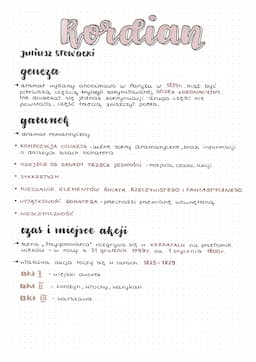 Kordian
Juliusz Słowacki
geneza
→ dramat wydany anonimowo w Paryżu w 1834r. miał być
pierwszą częścią trylogii zatytułowanej SPISEK KORONACYJNY.
nie doczekał się jednak kontynuacji - druga część nie
powstała, część trzecią zniszczył poeta.
gatunek
→ dramat romantyczny
• KOMPOZYCJA OTWARTA - luźne sceny dramatyczne, brak informacji
o dalszych losach bohatera
• ODEJŚCIE OD ZASADY TRZECH JEDNOŚCI - miejsca, czasu, akcji
• SYNKRETYZM
• MIESZANIE ELEMENTÓW ŚWIATA RZECZYWISTEGO I FANTASTYCZNEGO
• WYJĄTKOWOŚĆ BOHATERA - przechodzi przemianę wewnętrzną
• NIESCENICZNOŚĆ
czas i miejsce akcji
→ scena „Przygotowania" rozgrywa się w KARPATACH na przełomie
wieków - w nocy z 31 grudnia 1799r. na 1 stycznia 1800r.
→ właściwa akcja toczy się w latach 1825-1829.
akt I - wiejski dworek
akt II - Londyn, Włochy, Watykan
akt III - Warszawa